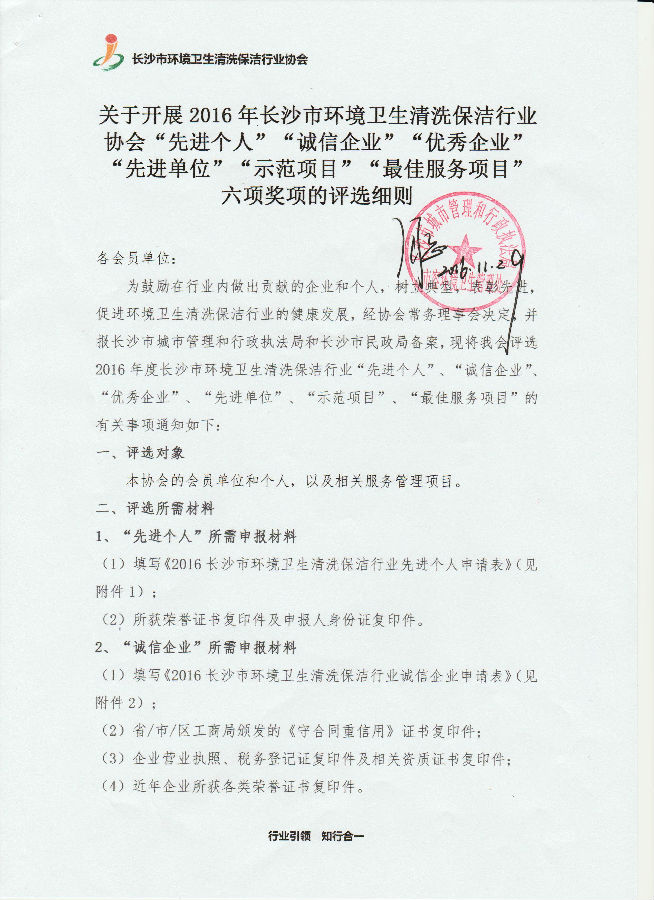 长沙市环境卫生清洗保洁行业协会
关于开展 2016 年长沙市环境卫生清洗保洁行业
协会“先进个人”“诚信企业”“优秀企业”
“先进单位”“示范项目”“最佳服务项目”
六项奖项的评选细则
城市管理和行政执法局
2016.11.29
各会员单位：
为鼓励在行业内做出贡献的企业和个人，树立典型，表彰先进，
促进环境卫生清洗保洁行业的健康发展，经协会常务理事会决定，并
报长沙市城市管理和行政执法局和长沙市民政局备案，现将我会评选
2016 年度长沙市环境卫生清洗保洁行业“先进个人”、“诚信企业”、
“优秀企业”、“先进单位”、“示范项目”、“最佳服务项目”的
有关事项通知如下：
一、评选对象
本协会的会员单位和个人，以及相关服务管理项目。
二、评选所需材料
1、“先进个人”所需申报材料
（1）填写《2016 长沙市环境卫生清洗保洁行业先进个人申请表》（见
附件 1）；
（2）所获荣誉证书复印件及申报人身份证复印件。
2、“诚信企业”所需申报材料
（1）填写《2016 长沙市环境卫生清洗保洁行业诚信企业申请表》（见
附件 2）；
（2）省/市/区工商局颁发的《守合同重信用》证书复印件；
（3）企业营业执照、税务登记证复印件及相关资质证书复印件；
（4）近年企业所获各类荣誉证书复印件。
行业引领 知行合一